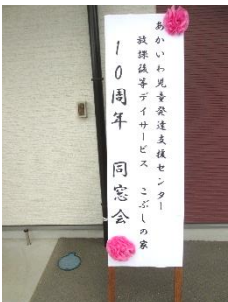 あかいわ児童発達支援センター
放課後等デイサービス こぶしの家
10周年 同窓会